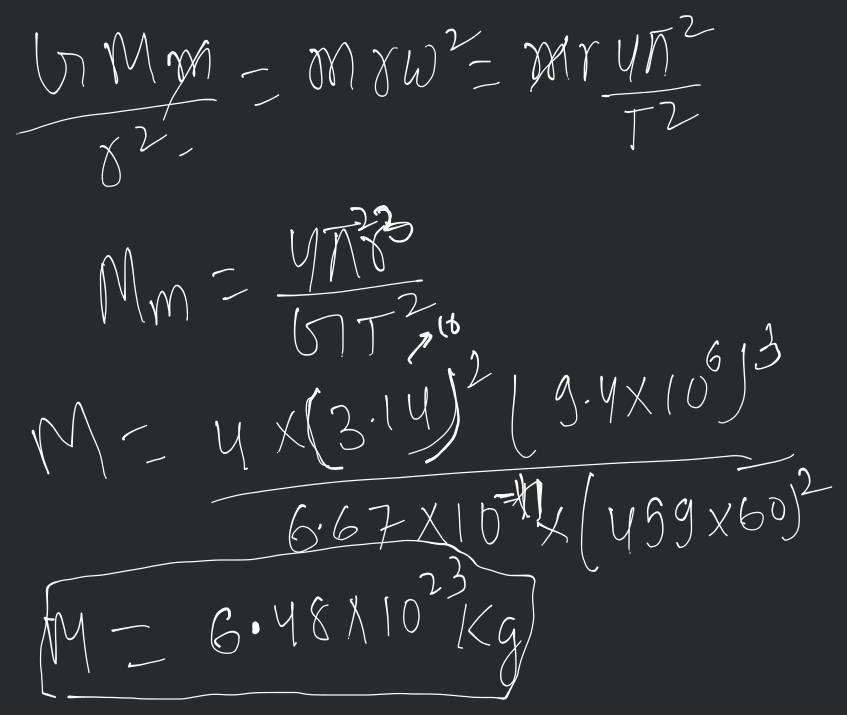 GMm/r² = mrω² = mr 4π²/T²
Mm = 4π²r³/GT²
→10
M = 4×(3.14)² (9.4×10⁶)³ / 6.67×10⁻¹¹×(459×60)²
M = 6.48×10²³Kg